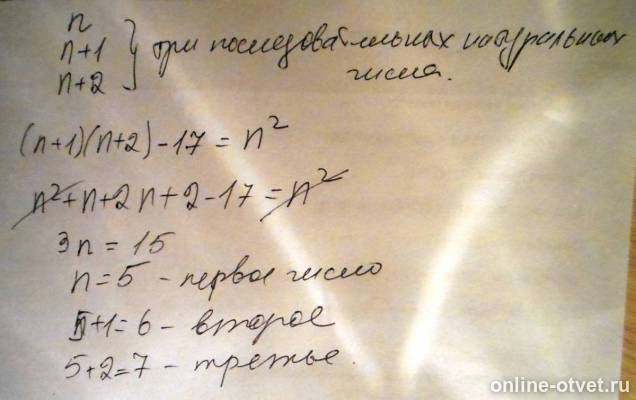 n
n+1
n+2
три последовательных натуральных
числа.
(n+1)(n+2)-17=n²
n²+n+2n+2-17=n²
3n=15
n=5 - первое число
5+1=6 - второе
5+2=7 - третье.
online-otvet.ru